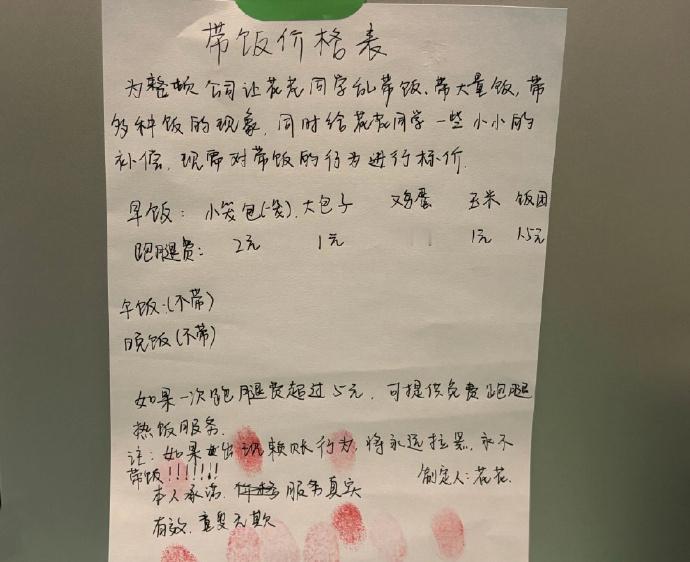 带饭价格表
为整顿公司让花花同学乱带饭、带大量饭,带
多种饭的现象,同时给花花同学一些小小的
补偿,现需对带饭的行为进行标价.
早饭: 小笼包(一笼). 大包子 鸡蛋 玉米 饭团
跑腿费: 2元 1元 1元 1.5元
午饭:(不带)
晚饭(不带)
如果一次跑腿费超过5元,可提供免费跑腿
热饭服务.
注:如果出现赖账行为,将永远拉黑,永不
带饭!!!!!!!
本人承诺, 服务真实 制定人:花花.
有效,童叟无欺